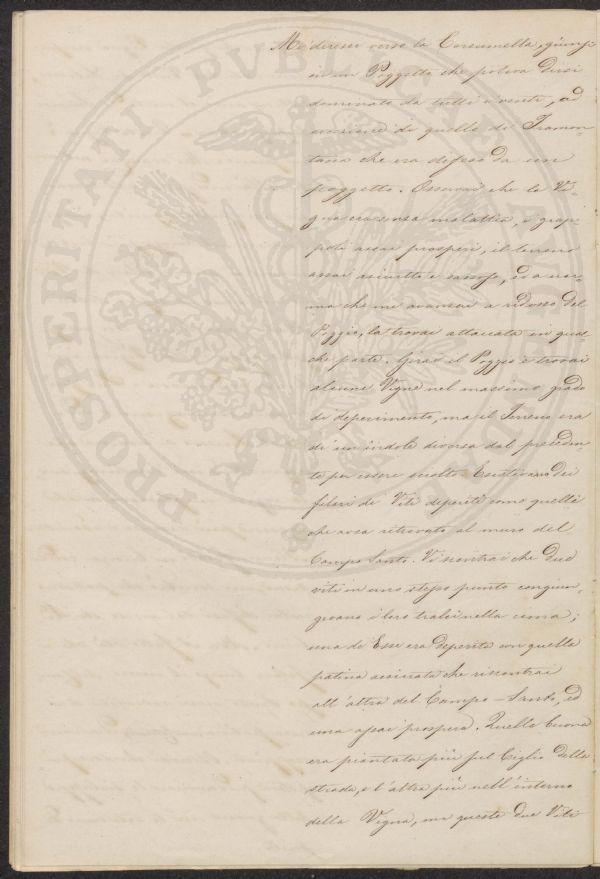 Mi diressi verso la Coccumella, giunsi
in un Poggetto che poteva dirsi
dominato da tutti i venti, ad
eccezione di quello di Tramon-
tana che era difeso da un
poggetto. Osservai che la Vi-
gna era senza malattia, i grap-
poli assai prosperi, il terreno
assai asciutto e sassoso, ed a nor-
ma che me avanzai a ridosso del
Poggio, la trovai attaccata in qual-
che parte. Girai il Poggio e trovai
alcune Vigne nel massimo grado
di deperimento, ma il Terreno era
di un'indole diversa dal preceden-
te per essere sciolto. Esistevano dei
filari di Viti deperite come quelle
che avea ritrovato al muro del
Campo Santo. Vi riscontrai che due
viti in uno stesso punto congiun-
gevano i loro tralci nella cima;
una di Esse era deperita con quella
patina che riscontrai
all'altra del Campo-Santo, ed
una assai prospera. Quella buona
era piantata più sul Ciglio della
strada, e l'altra più nell'interno
della Vigna, ma queste due Viti
PROSPERITATI PUBLICAE AUG